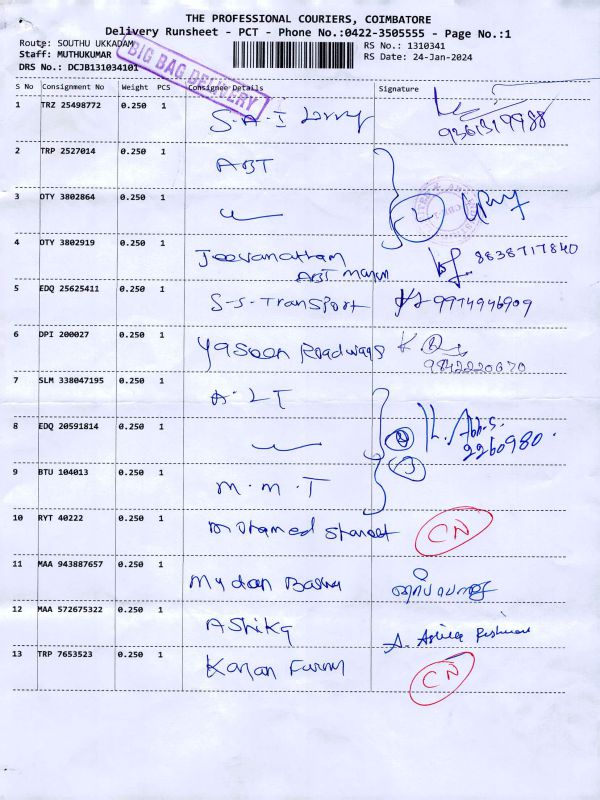 THE PROFESSIONAL COURIERS, COIMBATORE
Delivery Runsheet - PCT - Phone No.:0422-3505555 - Page No.:1
Route: SOUTHU UKKADAM
RS No.: 1310341
Staff: MUTHUKUMAR
RS Date: 24-Jan-2024
DRS No.: DCJB131034101
BIG BAG DELIVERY
S No Consignment No Weight PCS Consignee Details Signature
1 TRZ 25498772 0.250 1 S-A-I Lorry
9361319988
2 TRP 2527014 0.250 1 ABT
3 OTY 3802864 0.250 1
2
4 OTY 3802919 0.250 1 Jeevanatham 8838717840
ABT
5 EDQ 25625411 0.250 1 S-S-Transport 9974946909
6 DPI 200027 0.250 1 Yaseen Roadways
9842220670
7 SLM 338047195 0.250 1 A.L T
8 EDQ 20591814 0.250 1
2260980.
9 BTU 104013 0.250 1 M.M.T
3
10 RYT 40222 0.250 1 Mohamed CN
11 MAA 943887657 0.250 1
12 MAA 572675322 0.250 1 AShika
13 TRP 7653523 0.250 1 Karan CN